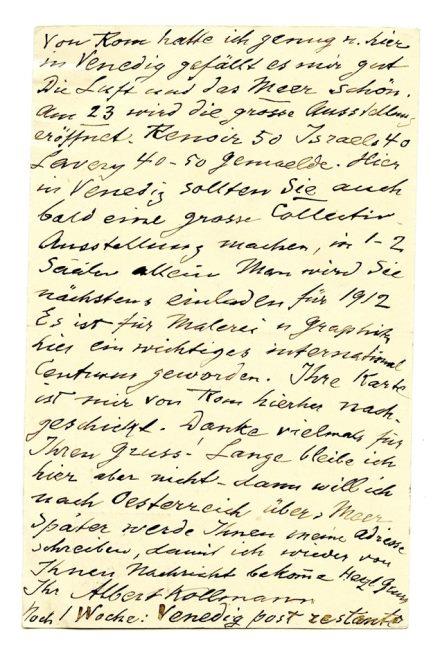 Von Rom hatte ich genug u. hier
in Venedig gefällt es mir gut
Die Luft und das Meer schön.
am 23 wird die grosse Ausstellung
eröffnet. Renoir 50 Israels 40
Lavery 40-50 Gemaelde. Hier
in Venedig sollten Sie auch
bald eine grosse Collectiv-
Ausstellung machen, in 1-2
Säälen allein Man wird Sie
nächstens einladen für 1912
Es ist für Malerei u Graphik
hier ein wichtiges international
Centrum geworden. Ihre Karte
ist mir von Rom hierher nach-
geschickt. Danke vielmals für
Ihren Gruss! Lange bleibe ich
hier aber nicht - dann will ich
nach Oesterreich übers Meer
Später werde Ihnen meine Adresse
schreiben, damit ich wieder von
Ihnen Nachricht bekom̄e Herzl Gruss
Ihr Albert Kollmann
Noch 1 Woche: Venedig post restante